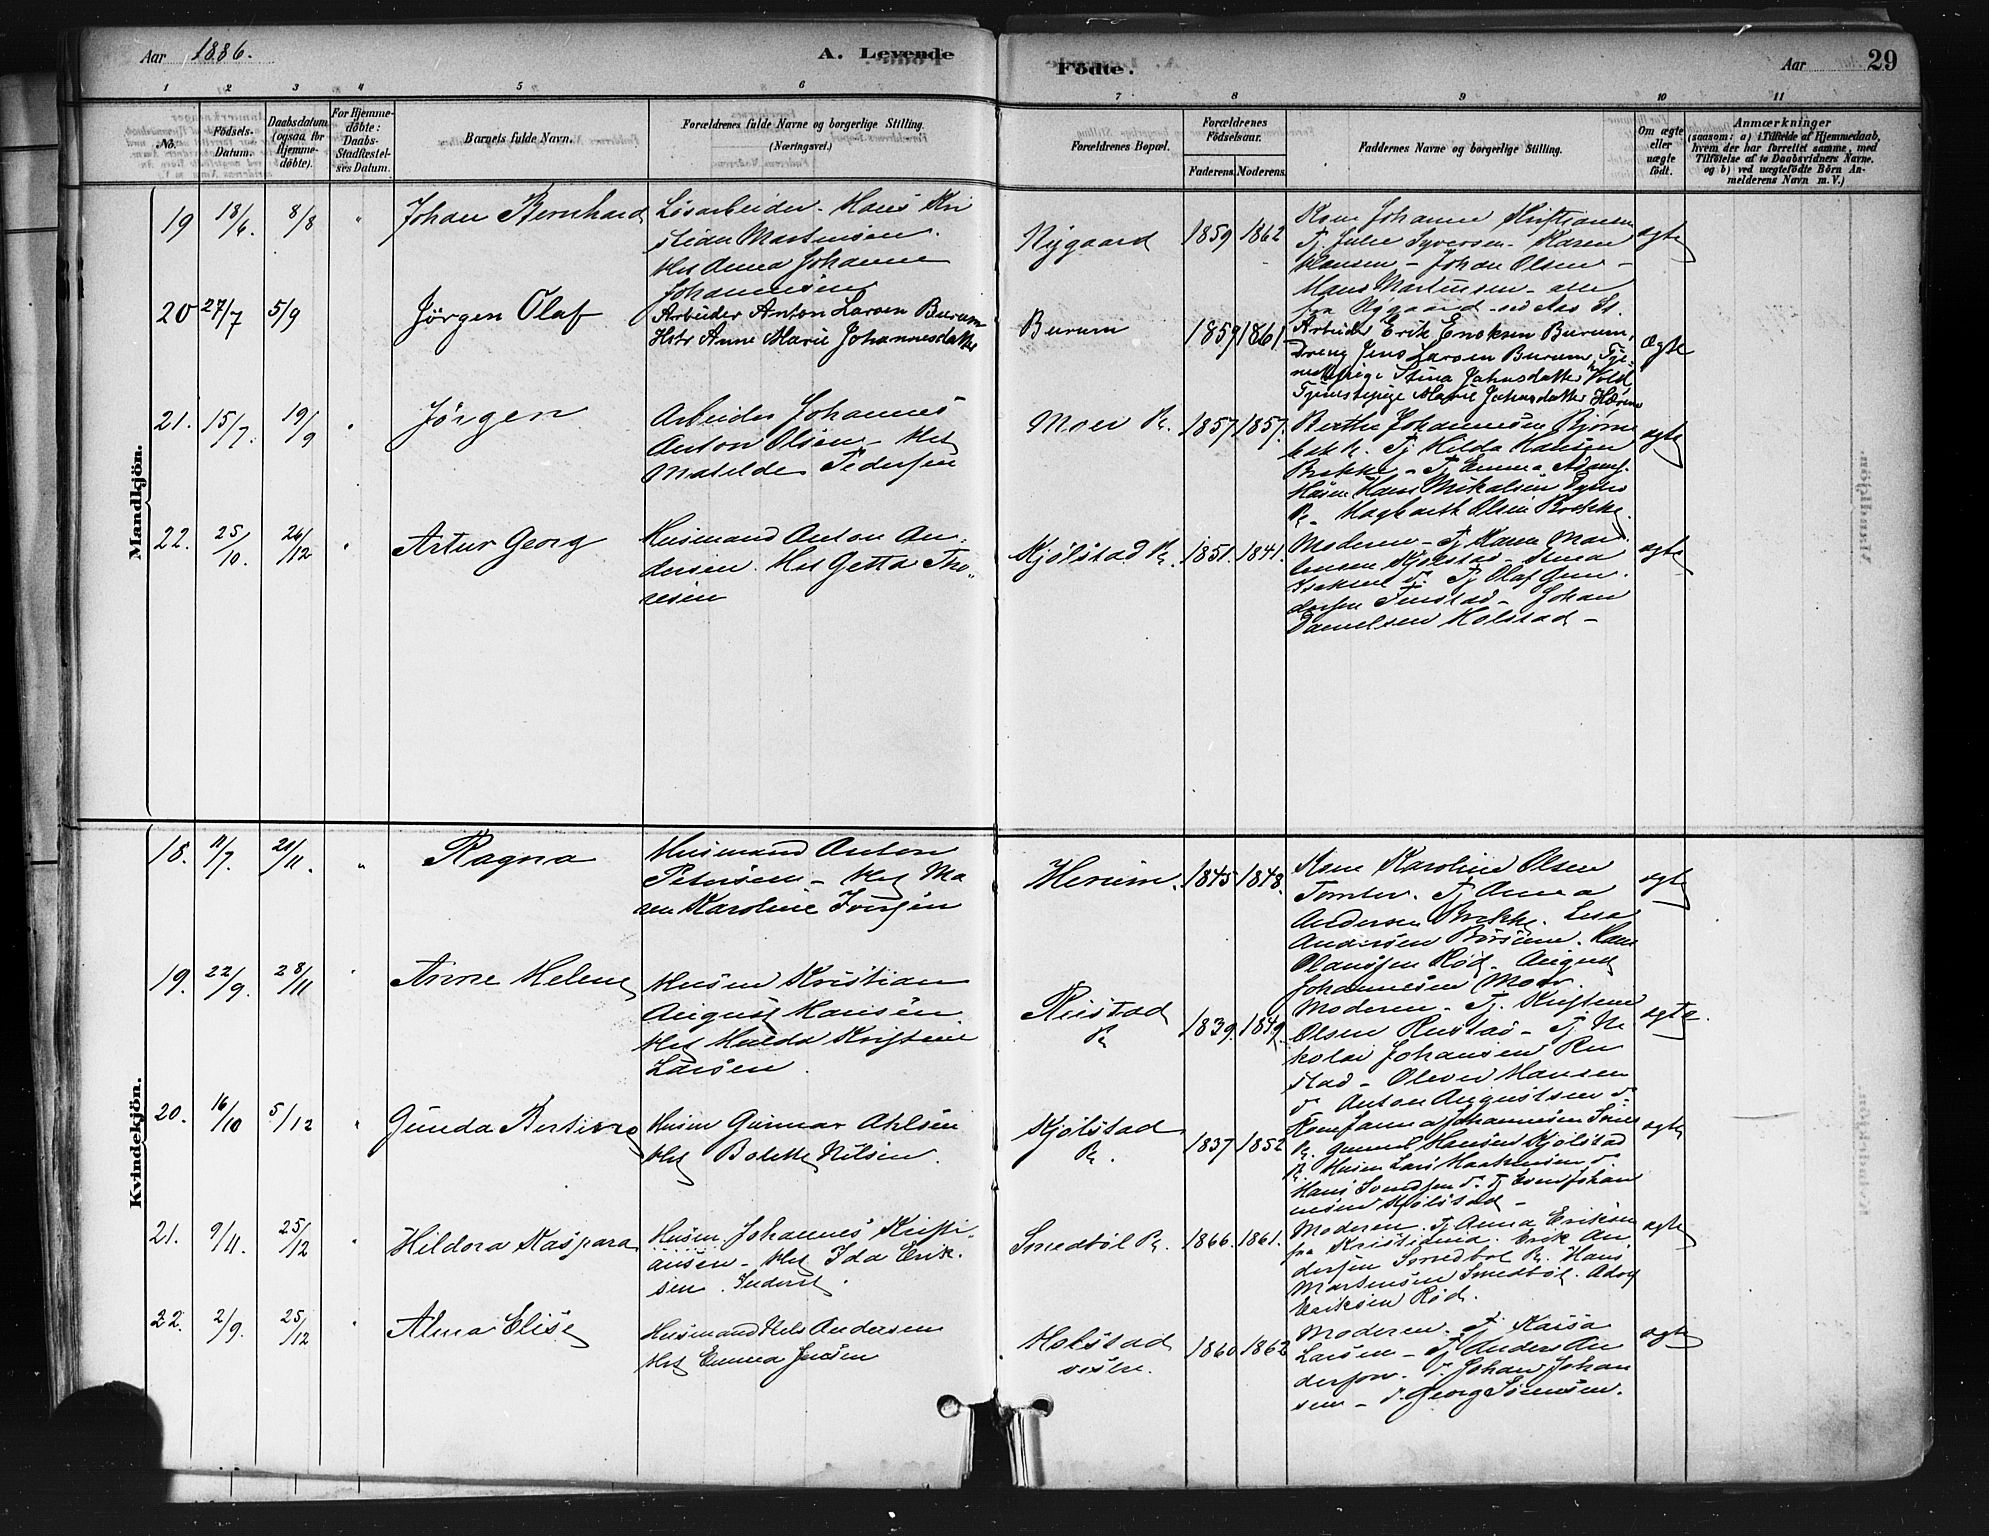 Aar 1886.
A. Levende
Födte.
Aar
29
1 2 3 4 5 6 7 8 9 10 11
No.
Födsels-
Datum.
Daabsdatum
(ogsaa for
Hjemme-
döbte).
For Hjemme-
döbte:
Daabs-
Stadfæstel-
ses Datum.
Barnets fulde Navn.
Forældrenes fulde Navne og borgerlige Stilling.
(Næringsvei.)
Forældrenes Bopæl.
Forældrenes
Födselsaar.
Faderens. Moderens.
Faddernes Navne og borgerlige Stilling.
Om ægte
eller
uægte
født.
Anmærkninger
(saasom: a) i Tilfælde af Hjemmedaab,
hvem der har forrettet samme, med
Tilföielse af to Daabsvidners Navne.
og b) ved uægtefödte Börn An-
melderens Navn m. V.)
Mandkjön.
19 18/6. 8/8 " Johan Bernhard
Løsarbeider Hans Kri
stian Martinsen.
Hst Anna Johanne
Johannesen
Nygaard 1859 1862
Kone Johanne Kristiansen
Tj. Julie Syversen - Karen
Hansen - Johan Olsen -
Hans Martinsen - alle
fra Nygaard ved Aas St.
ægte
20 27/7 5/9 Jørgen Olaf
Arbeider Anton Larsen Burum
Hstr Anne Marie Johannesdatter
Burum 1859 1861
Arbeider Erik Eriksen Burum,
Dreng Jens Larsen Burum, Tje-
nestepige Stina Jahnsdatter Vold
Tjenestepige Marie Jahnsdatter Hærum
Ægte
21. 15/7. 19/9 " Jørgen
Arbeider Johannes
Anton Olsen - Hst
Matilde Pedersen
Moer Pl. 1857 1857.
Berthe Johannesen Bjørne
bæk. Tj. Hilda Hansen
Brekke - Tj Emma Adams.
Hans Mikalsen
Pl. Hagbarth Olsen Brekke.
ægte
22. 25/10. 26/12 " Artur Georg
Husmand Anton An-
dersen. Hst Getta Tho-
resen
Kjölstad Pl. 1851. 1841.
Moderen - Tj Karen Mar
tinsen Kjølstad -
Tj Olaf Gun
dersen Finstad - Johan
Danielsen Holstad -
ægte
Kvindekjön.
18. 11/7. 21/11. " Ragna
Husmand Anton
Petersen - Hst Ma
ren Karoline
Herum. 1845 1848.
Kone Karoline Olsen
Tomter. Tj Anna
Andersen Brekke. Lesa
Andersen Børsum.
Olaussen Rød - August
Johannesen Moer.
ægte
19. 22/9. 28/11 " Anne Helene
Husm Kristian
August Hansen.
Hst Hulda Kristine
Larsen.
Rustad
Pl 1839. 1849.
Moderen - Tj. Kristine
Olsen Rustad - Tj Ni
kolai Johansen Ru
stad - Oliver Hansen
d. Anton Augustsen d.
ægte.
20. 16/10 5/12 " Gunda Bertine
Husm Gunnar Ahlsen
Hst Bolette Nilsen.
Kjölstad
Pl. 1837 1852
Kone Janna Johannesen
Pl. Gunnar Hansen Kjølstad
Pl. Husm Lars
Hans Svendsen d. Tj Johan
nesen Kjølstad -
ægte
21. 9/11. 25/12 " Hildora Kaspara
Husm. Johannes Kristi-
ansen - Hst Ida Erik-
sen.
Smedböl Pl. 1866. 1861.
Moderen. Tj Anna Eriksen
fra Kristiania. Erik An
dersen Smedbøl Pl. Hans
Martinsen Smedbøl. Adolf
Eriksen Rød.
ægte
22. 2/9. 25/12 " Alma Elise
Husmand Nils Andersen
Hst Emma Jensen
Holstad
vestre. 1860 1862
Moderen. Tj Kaisa
Larsen - Tj Anders An
derson. d. Johan Johan
sen - d. Georg Sørensen.
ægte